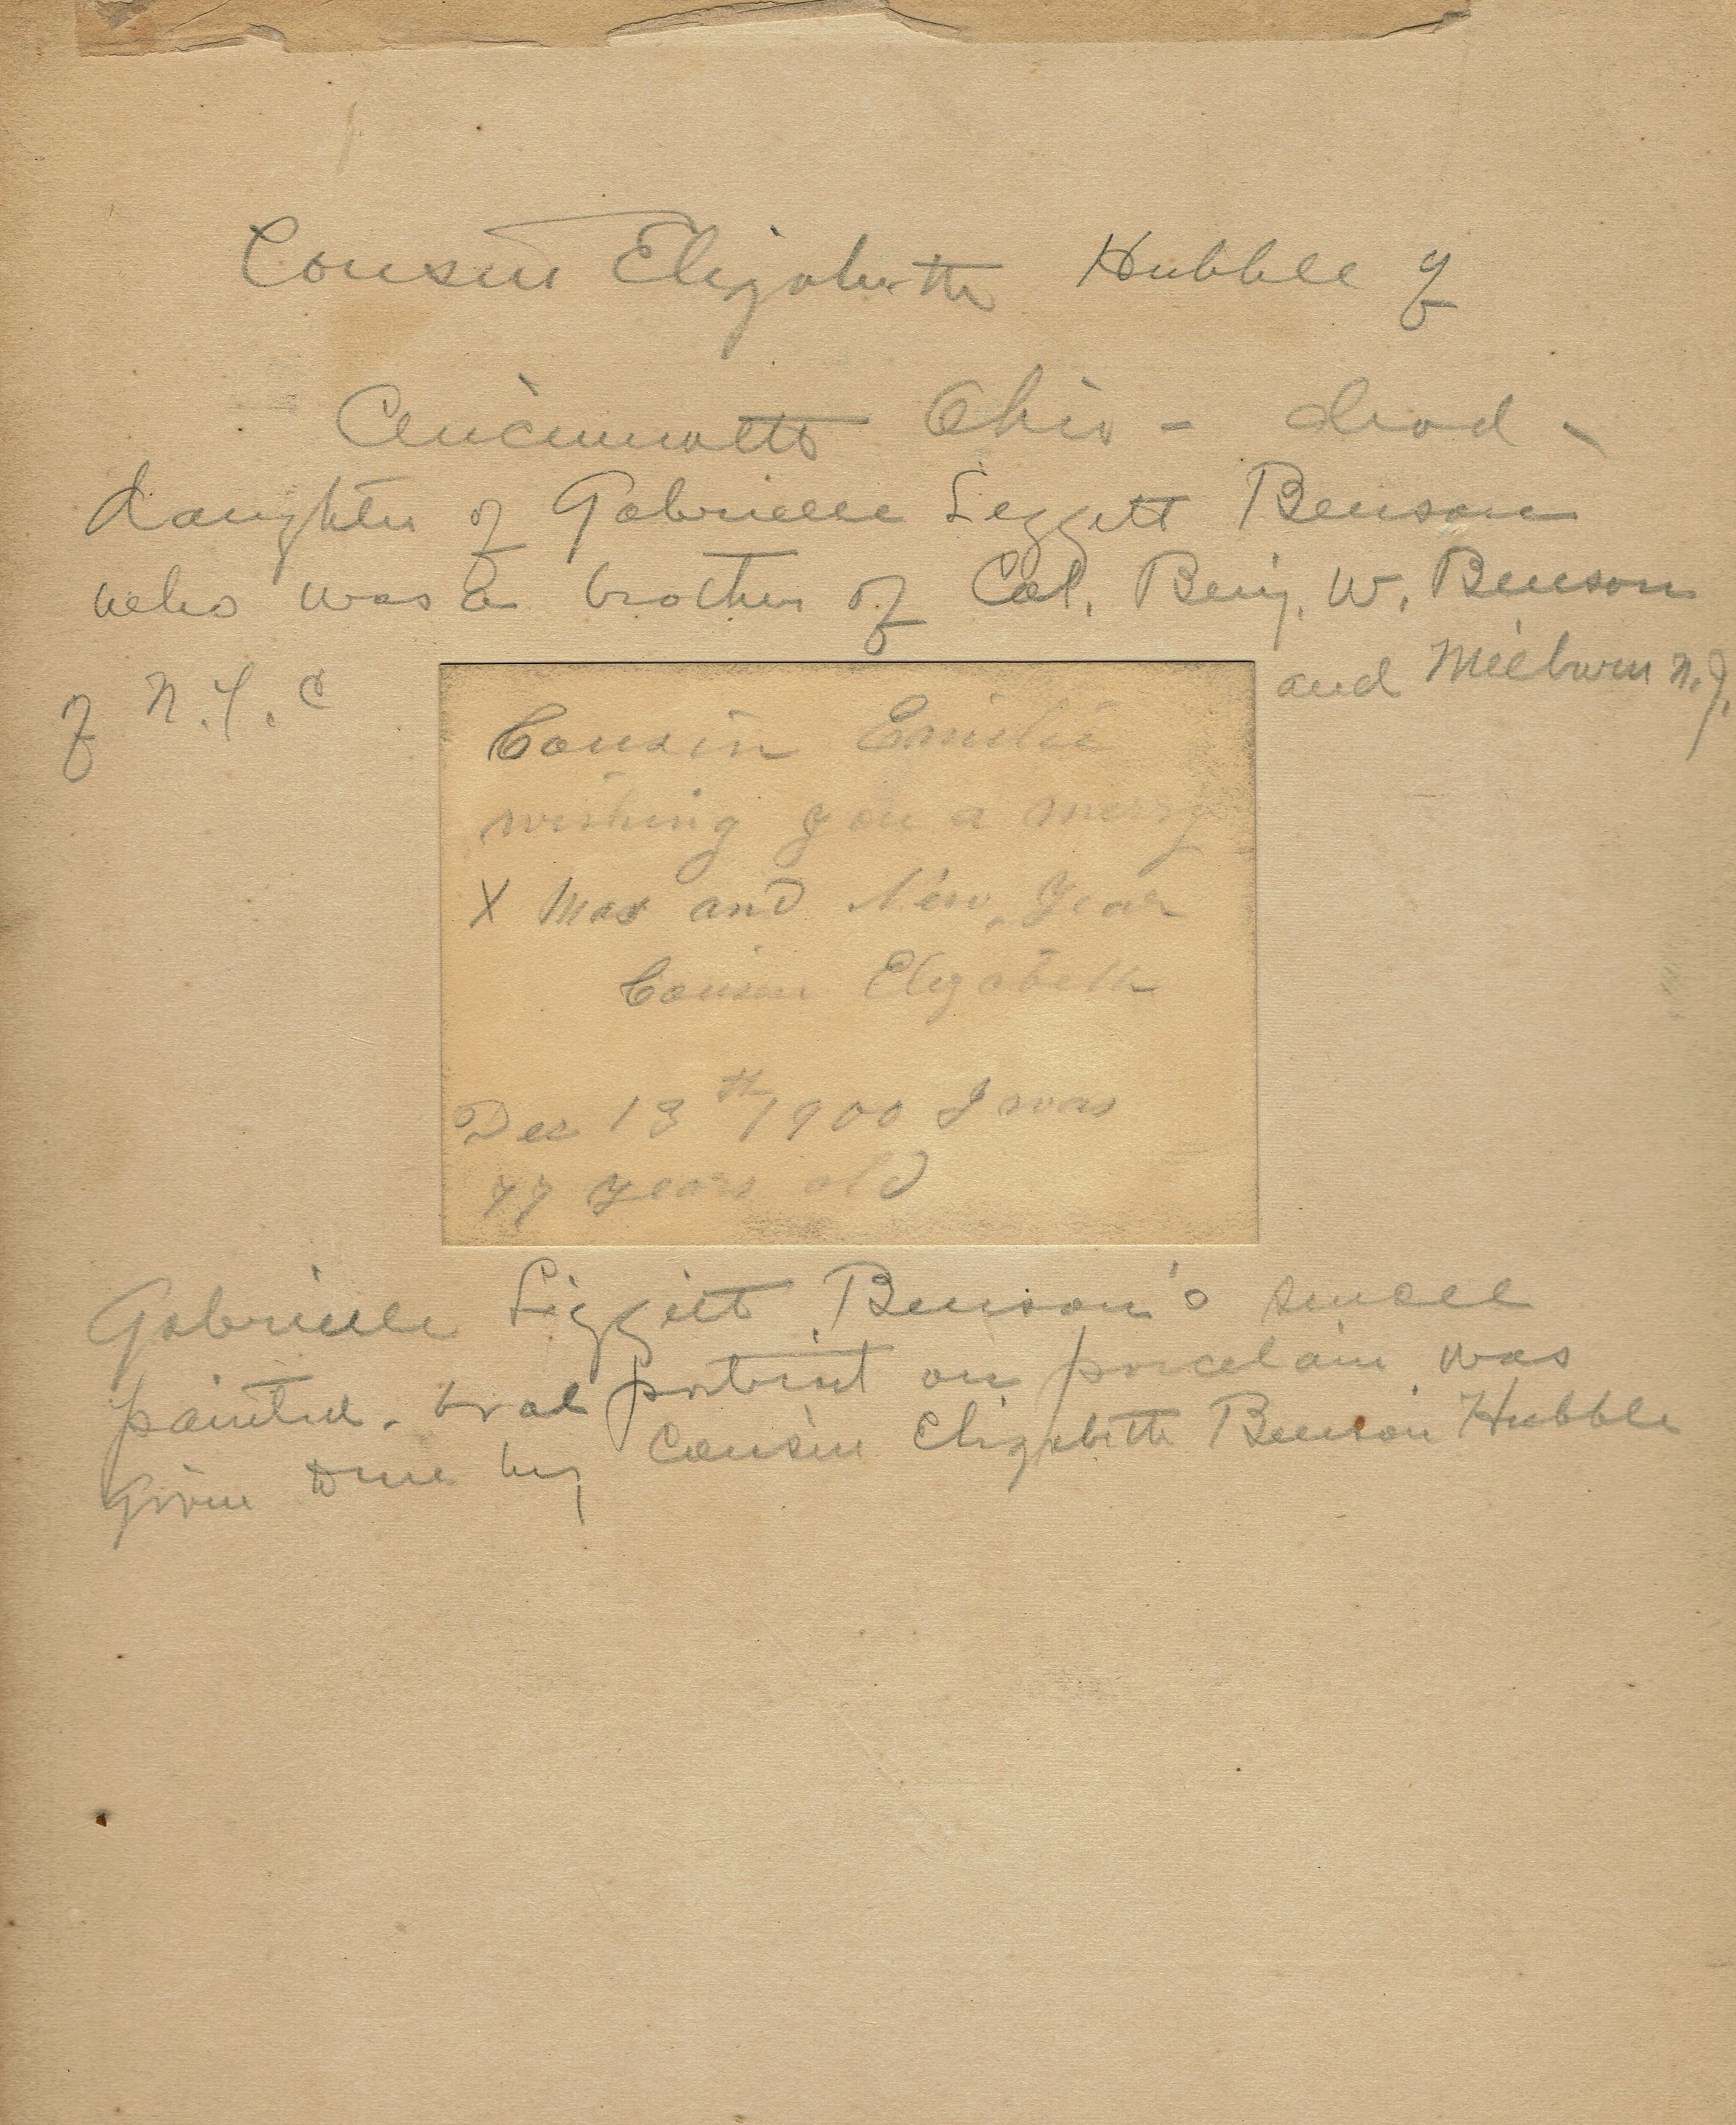 Cousin Elizabeth Hubble of
Cincinnatti Ohio - dead -
daughter of Gabrielle Leggett Benson
who was a brother of Col. Benj. W. Benson
of N.Y.C and Milburn N.J.
Cousin Emilie
wishing you a merry
X Mas and New Year
Cousin Elizabeth
Dec 13th 1900 I was
77 years old
Gabrielle Liggett Benson's small
painted oval portrait on porcelain was
given to me by Cousin Elizabeth Benson Hubble